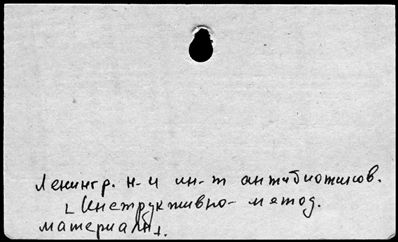 Ленингр. н-и ин-т антибиотиков.
[Инструктивно-метод.
материалы.